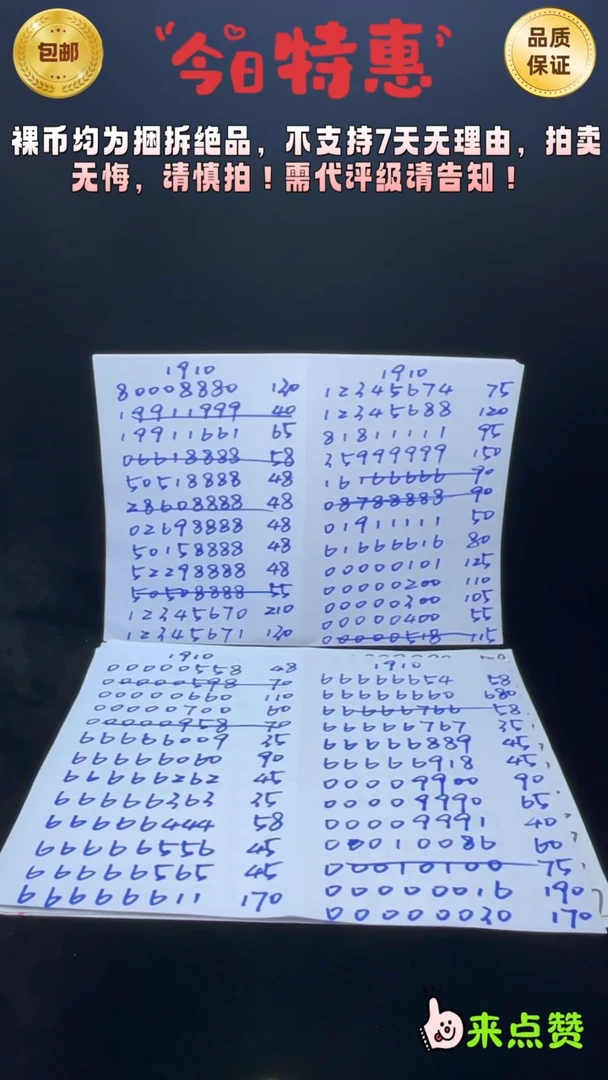 包邮
今日特惠
品质
保证
裸币均为捆拆绝品，不支持7天无理由，拍卖
无悔，请慎拍！需代评级请告知！
1910
80008880 130
19911999 40
19911661 65
06618888 58
50518888 48
28608888 48
02698888 48
50158888 48
52298888 48
50508888 55
12345670 210
12345671 130
1910
12345674 75
12345688 120
81811111 95
35999999 150
16166666 90
08788888 90
01911111 50
61666616 80
00000101 125
00000200 110
00000300 105
00000400 55
00000518 115
1910
00000558 48
00000598 70
00000660 110
00000700 60
00000958 70
66666009 35
66666060 90
66666262 45
66666363 35
66666444 58
66666556 45
66666565 45
66666611 170
1910
66666654 58
66666660 680
66666766 58
66666767 35
66666889 45
66666918 45
00009900 90
00009990 65
00009991 40
00010086 60
00010100 75
00000016 190
00000030 170
来点赞